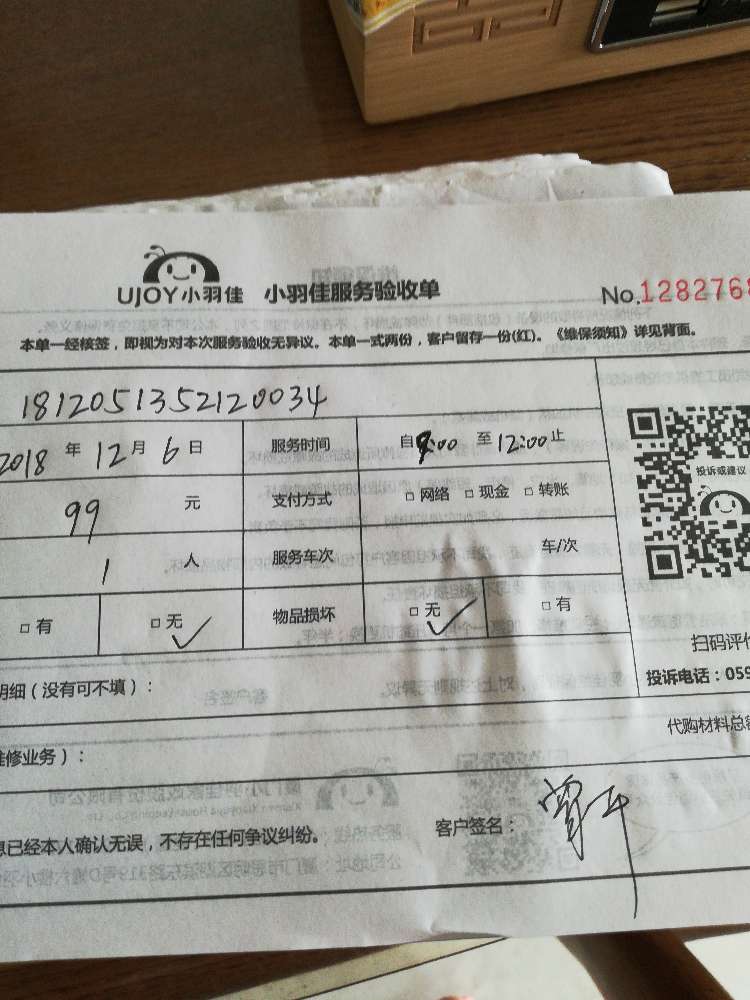 UJOY小羽佳 小羽佳服务验收单 No.1282768
本单一经核签，即视为对本次服务验收无异议。本单一式两份，客户留存一份(红)。《维保须知》详见背面。
1812051352120034
2018 年 12 月 6 日 服务时间 自 8:00 至 12:00 止
99 元 支付方式 □ 网络 □ 现金 □ 转账
1 人 服务车次 车/次
□ 有 □ 无 ✓ 物品损坏 □ 无 ✓ □ 有
投诉或建议
扫码评价
投诉电话：059
明细（没有可不填）：
代购材料总额
维修业务）：
息已经本人确认无误，不存在任何争议纠纷。 客户签名：